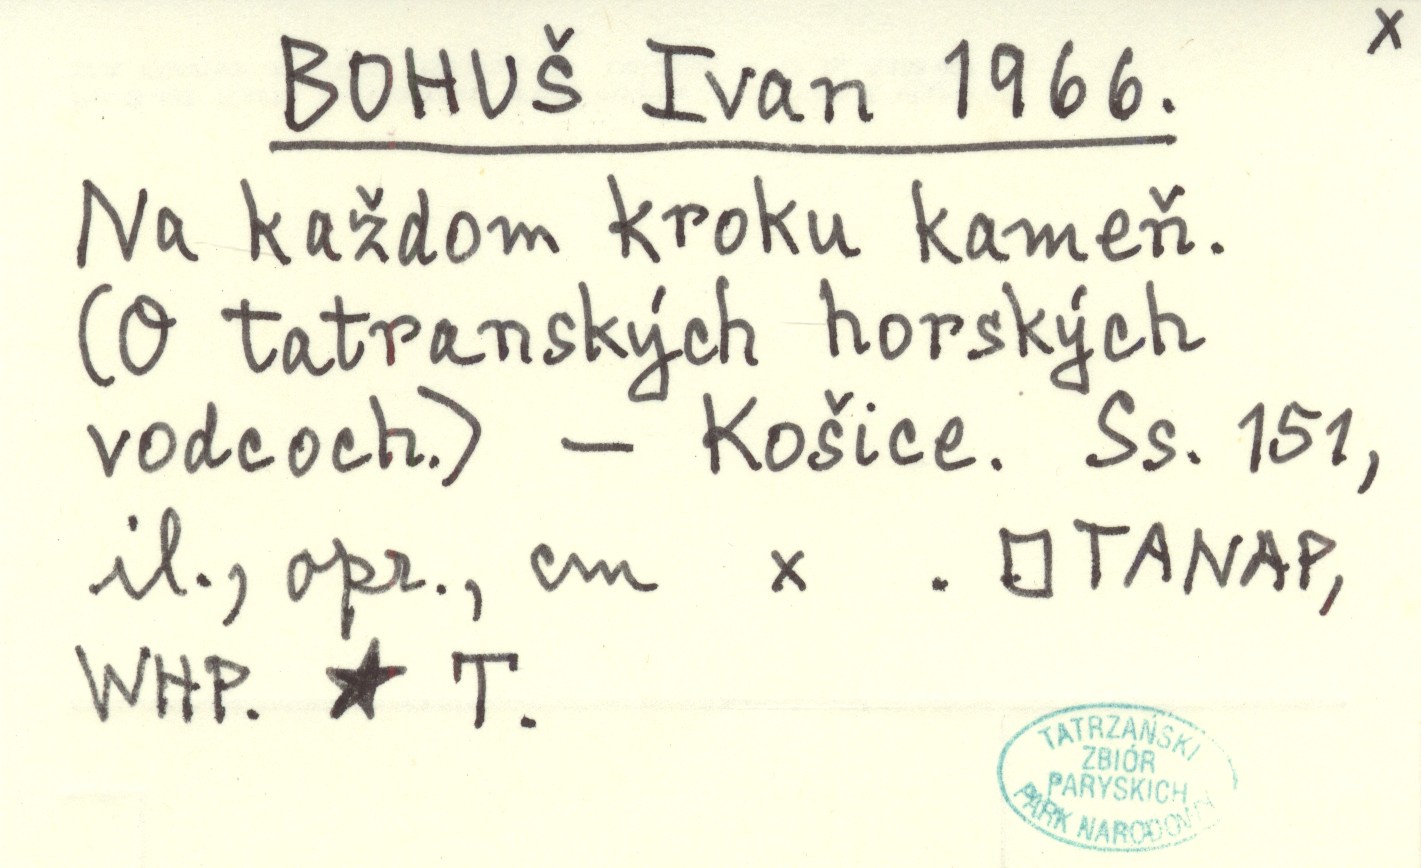 x
BOHUŠ Ivan 1966.
Na každom kroku kameň.
(O tatranských horských
vodcoch.) — Košice. Ss. 151,
il., opr., cm x . □ TANAP,
WHP. ★ T.
TATRZAŃSKI
ZBIÓR
PARYSKICH
PARK NARODOWY